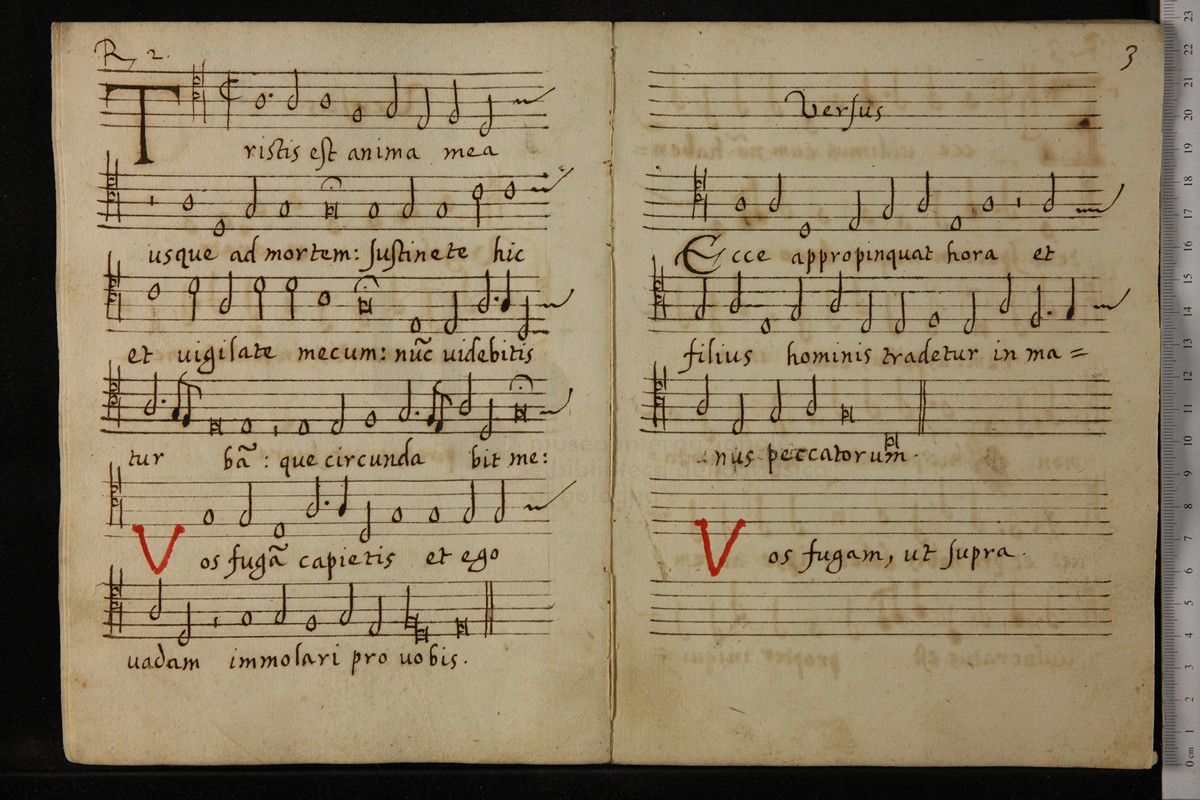 R, 2.
Tristis est anima mea
usque ad mortem: sustinete hic
et uigilate mecum: nūc uidebitis
tur bā: que circunda bit me:
Vos fugā capietis et ego
uadam immolari pro uobis.
3
Versus
Ecce appropinquat hora et
filius hominis tradetur in ma=
nus peccatorum.
Vos fugam, ut supra.
museo internazionale
biblioteca
bologna
0 cm 1 2 3 4 5 6 7 8 9 10 11 12 13 14 15 16 17 18 19 20 21 22 23